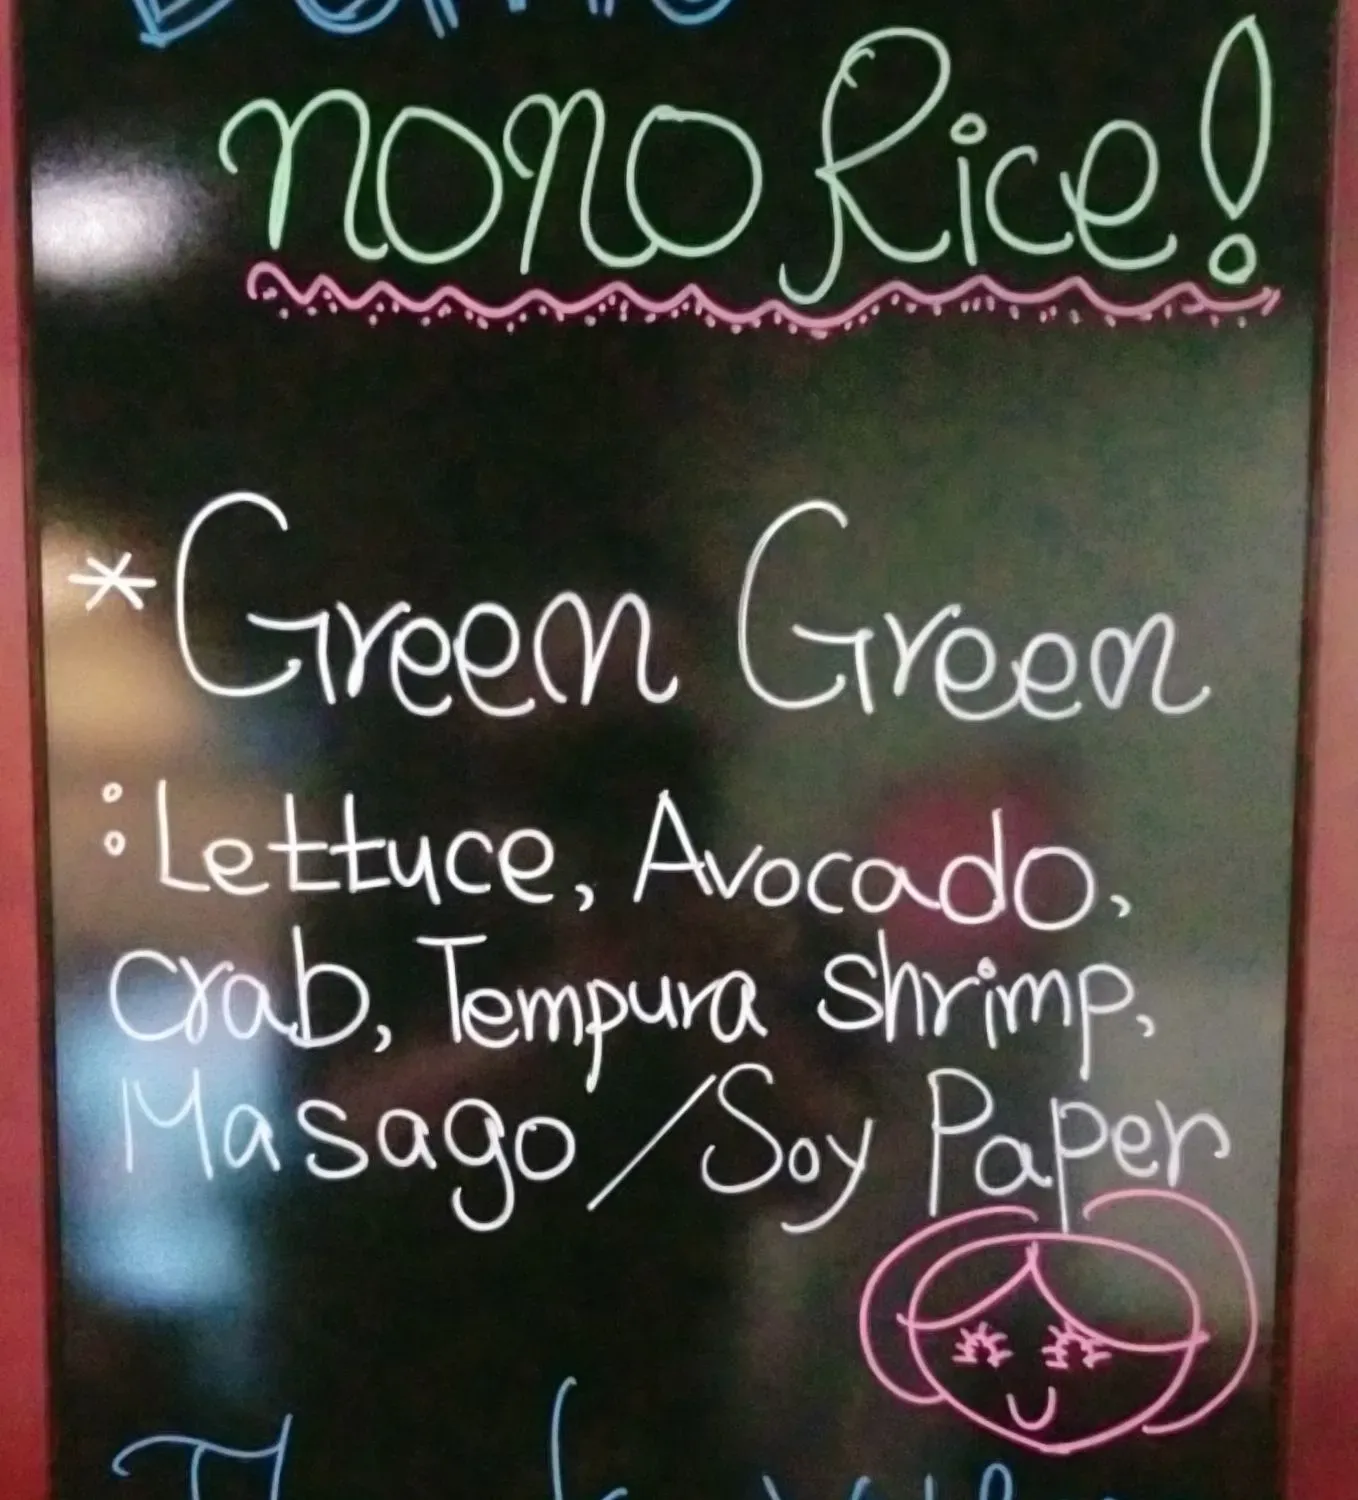 nono Rice!
*Green Green
: Lettuce, Avocado,
Crab, Tempura shrimp,
Masago / Soy Paper